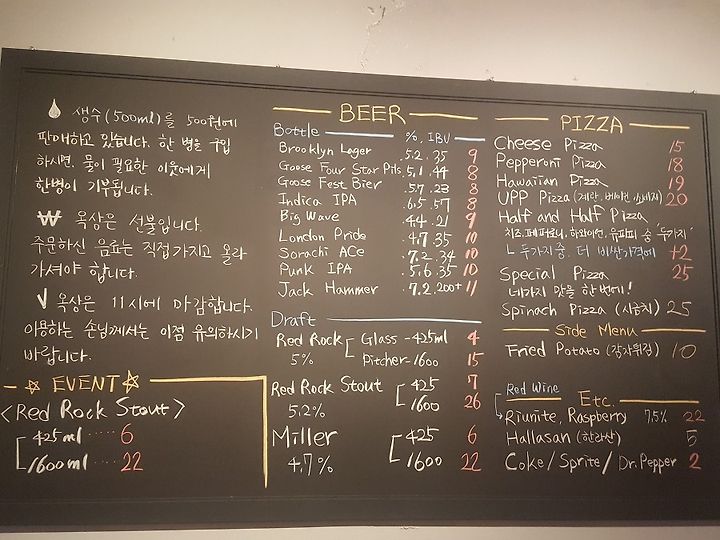 생수(500ml)를 500원에
판매하고 있습니다. 한 병을 구입
하시면, 물이 필요한 이웃에게
한병이 기부됩니다.
₩ 옥상은 선불입니다.
주문하신 음료는 직접 가지고 올라
가셔야 합니다.
√ 옥상은 11시에 마감합니다.
이용하는 손님께서는 이점 유의하시기
바랍니다.
EVENT
<Red Rock Stout>
425ml ..... 6
1600ml ... 22
BEER
Bottle %. IBU
Brooklyn Lager .5.2. 35 9
Goose Four Star Pils. 5.1. 44 8
Goose Fest Bier . 5.7. 23 8
Indica IPA 6.5. 57 8
Big Wave 4.4. 21 9
London Pride 4.7. 35 10
Sorachi ACe .7.2. 34 10
Punk IPA .5.6. 35 10
Jack Hammer .7.2. 200+ 11
Draft
Red Rock Glass - 425ml 4
5% Pitcher - 1600 15
Red Rock Stout 425 7
5.2% 1600 26
Miller 425 6
4.7% 1600 22
PIZZA
Cheese Pizza 15
Pepperoni Pizza 18
Hawaiian Pizza 19
UPP Pizza (계란, 베이컨, 소세지) 20
Half and Half Pizza
치즈, 페퍼로니, 하와이언, 유피피 중 '두가지'
ㄴ 두가지 중. 더 비싼가격에 +2
Special Pizza 25
네가지 맛을 한번에!
Spinach Pizza (시금치) 25
Side Menu
Fried Potato (감자튀김) 10
Red Wine Etc.
Riunite, Raspberry 7.5% 22
Hallasan (한라산) 5
Coke / Sprite / Dr. Pepper 2